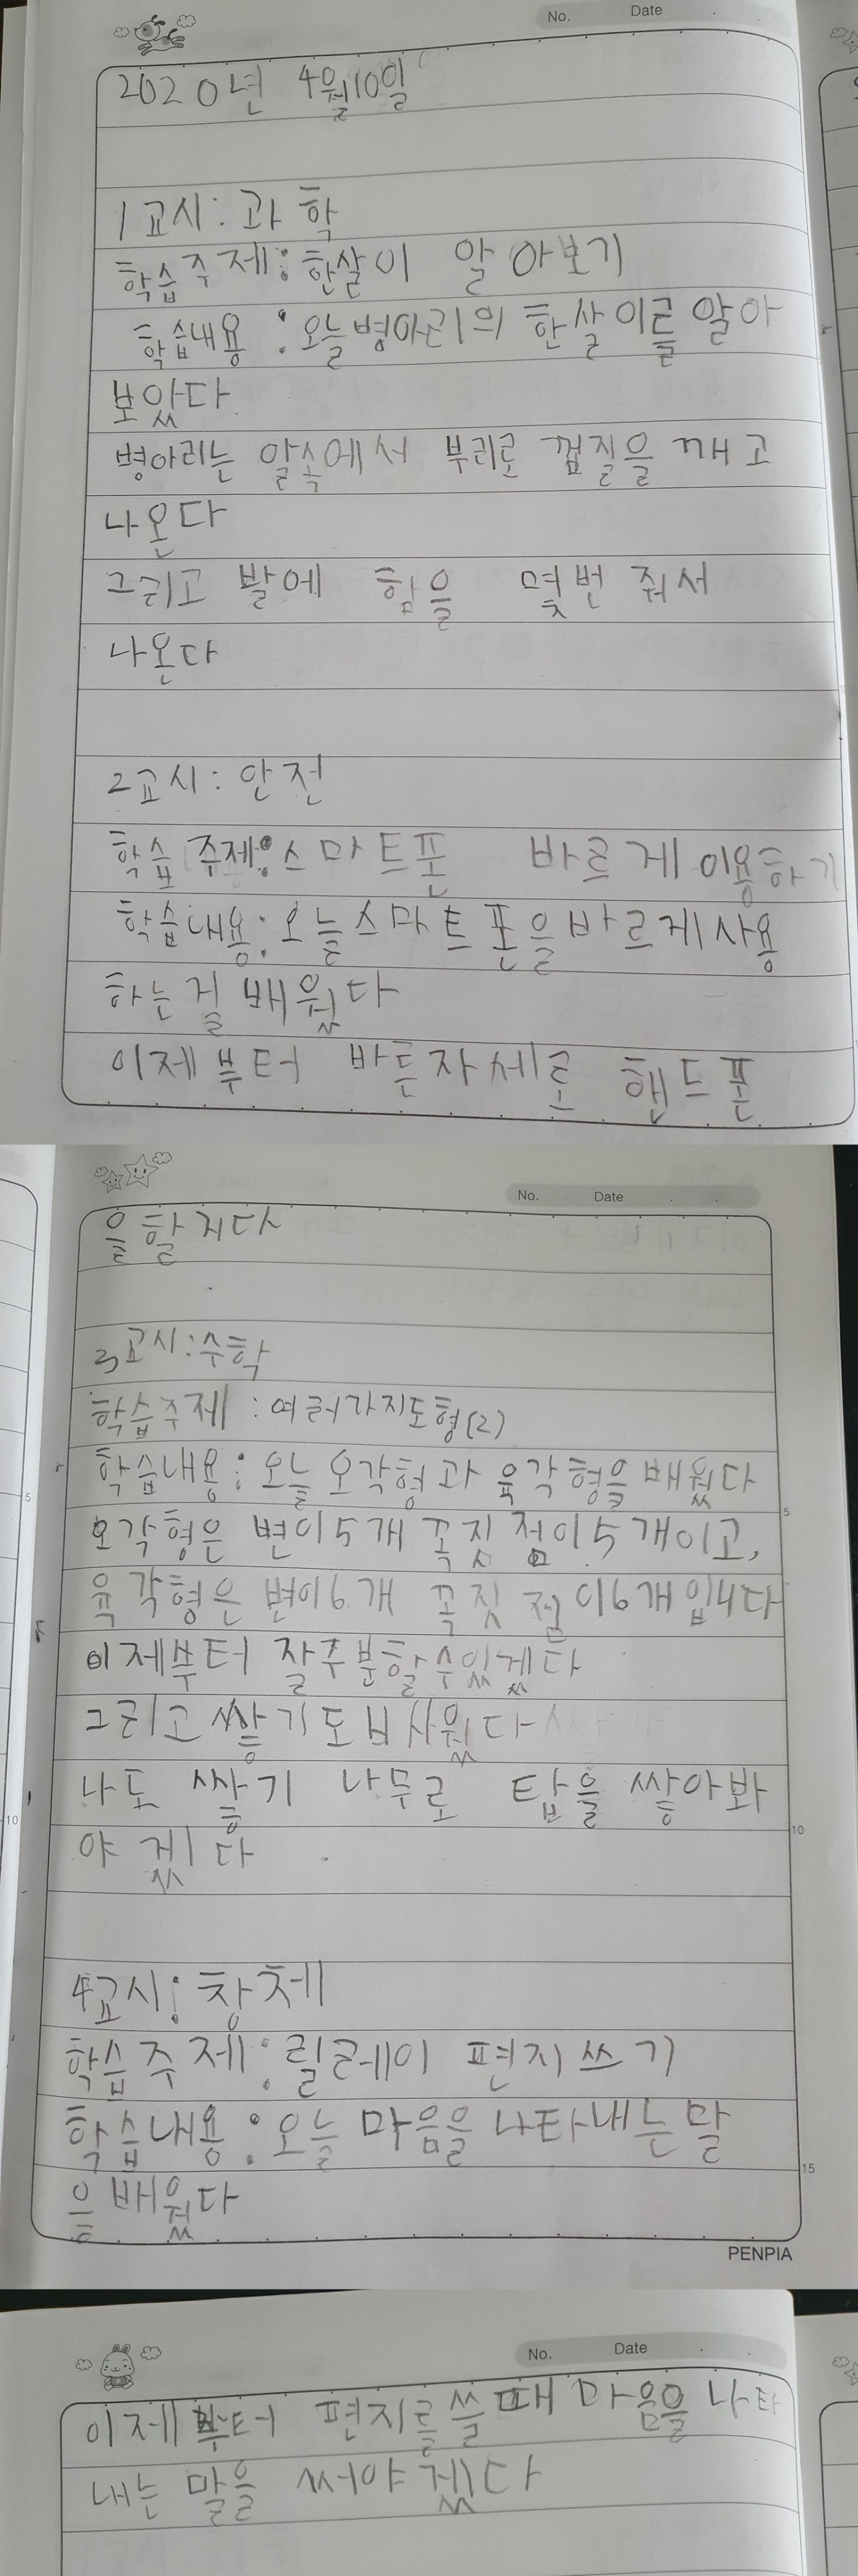 No. Date
2020년 4월10일
1교시: 과학
학습주제: 한살이 알아보기
학습내용 : 오늘병아리의 한살이를알아
보았다
병아리는 알속에서 부리로 껍질을 깨고
나온다
그리고 발에 힘을 몇번 줘서
나온다
2교시: 안전
학습 주제: 스마트폰 바르게이용하기
학습내용: 오늘스마트폰을바르게사용
하는걸배웠다
이제부터 바른자세로 핸드폰
No. Date
을할꺼다
3교시:수학
학습주제 :여러가지도형(2)
학습내용: 오늘 오각형과 육각형을배웠다
오각형은 변이5개 꼭짓점이5개이고,
육각형은변이6개 꼭짓점이6개입니다
이제부터 잘구분할수있겠다
그리고쌓기도배웠다
나도 쌓기 나무로 탑을 쌓아봐
야겠다
4교시: 창체
학습주제:릴레이 편지쓰기
학습내용: 오늘 마음을 나타내는말
을배웠다
5
10
5
10
15
PENPIA
No. Date
이제부터 편지를쓸때마음을나타
내는 말을 써야겠다